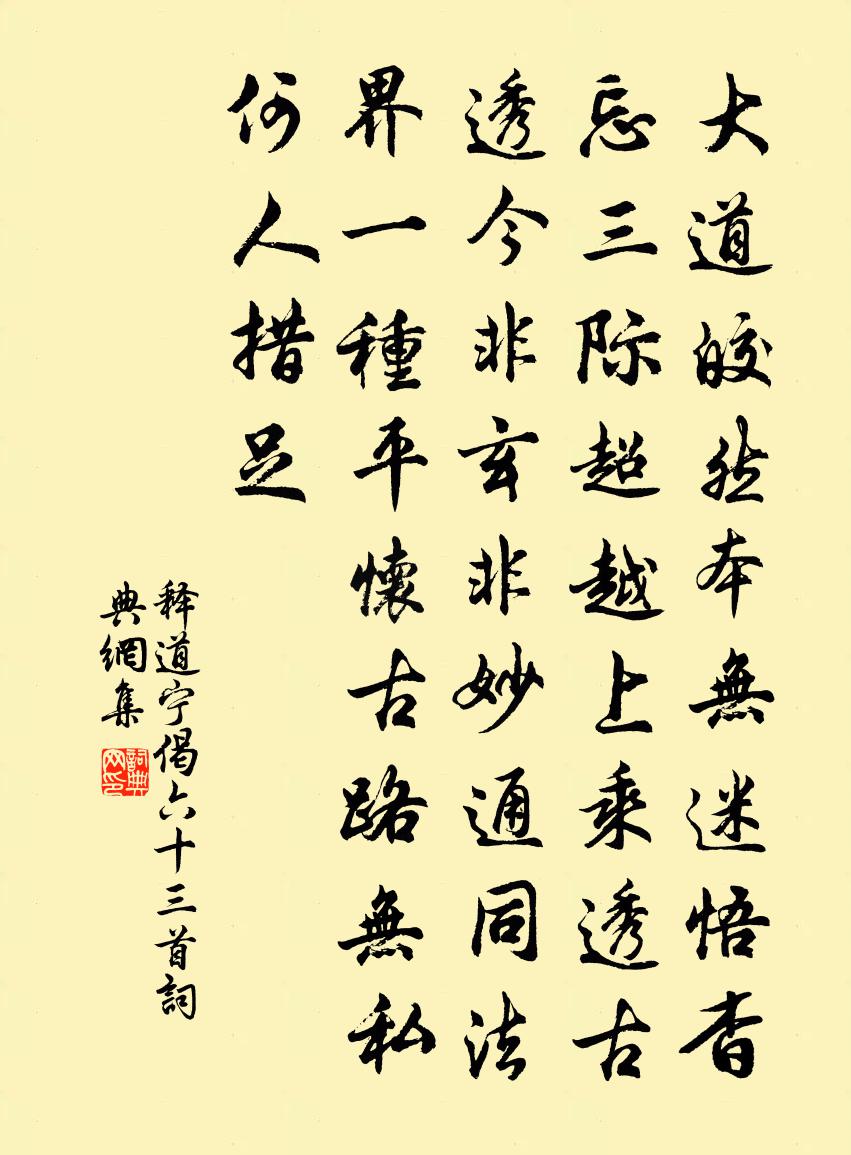 大道皎然本無迷悟杳
忘三际超越上乘透古
透今非玄非妙通同法
界一種平懷古路無私
何人措足
释道宁偈六十三首詞
典網集
詞典网印